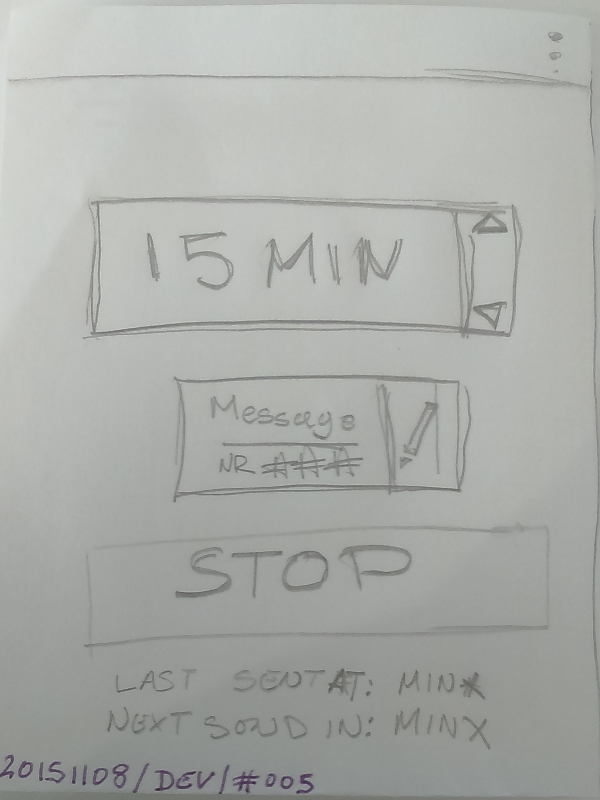 15 MIN
Message
NR ###
STOP
LAST SENT AT: MINX
NEXT SOND IN: MINX
20151108/DEV/#005